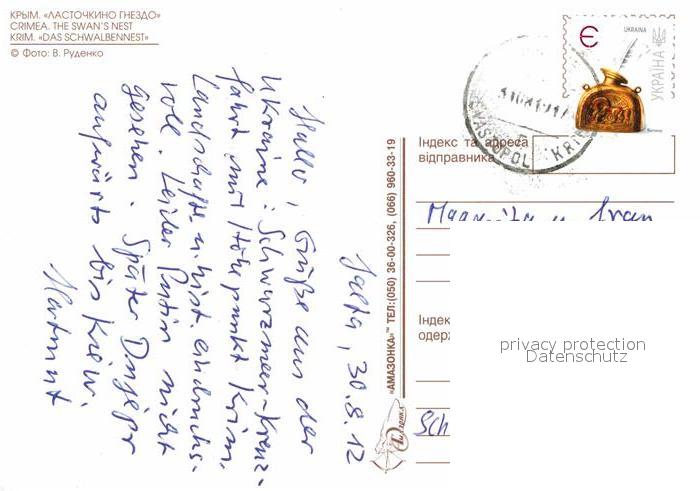 КРЫМ. «ЛАСТОЧКИНО ГНЕЗДО»
CRIMEA. THE SWAN'S NEST
KRIM. «DAS SCHWALBENNEST»
© Фото: В. Руденко
Jalta, 30.8.12
Hallo, Grüße aus der
Ukraine: Schwarzmeer-Kreuz-
fahrt mit Höhepunkt Krim.
Landschaftl. u. hist. eindrucks-
voll. Leider Putin nicht
gesehen. Später Dnjepr
aufwärts bis Kiew.
Hartmut
«АМАЗОНКА»™ ТЕЛ:(050) 36-00-326, (066) 960-33-19
Амазонка
UKRAINA
УКРАЇНА
Є
SEVASTOPOL KRIM
Індекс та адреса
відправника
u. Ivan
Індек
одерж
Sch
privacy protection
Datenschutz